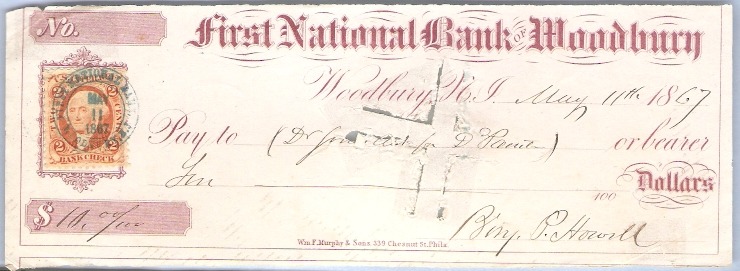 No.
First National Bank of Woodbury
Woodbury N.J. May 11th 1867
Pay to (Dr or bearer
Ten 100 Dollars
2 2
BANK CHECK
MAY
11
1867
$ 10.00/100
Benj. P. Howell
Wm F. Murphy & Sons 339 Chesnut St. Phila.